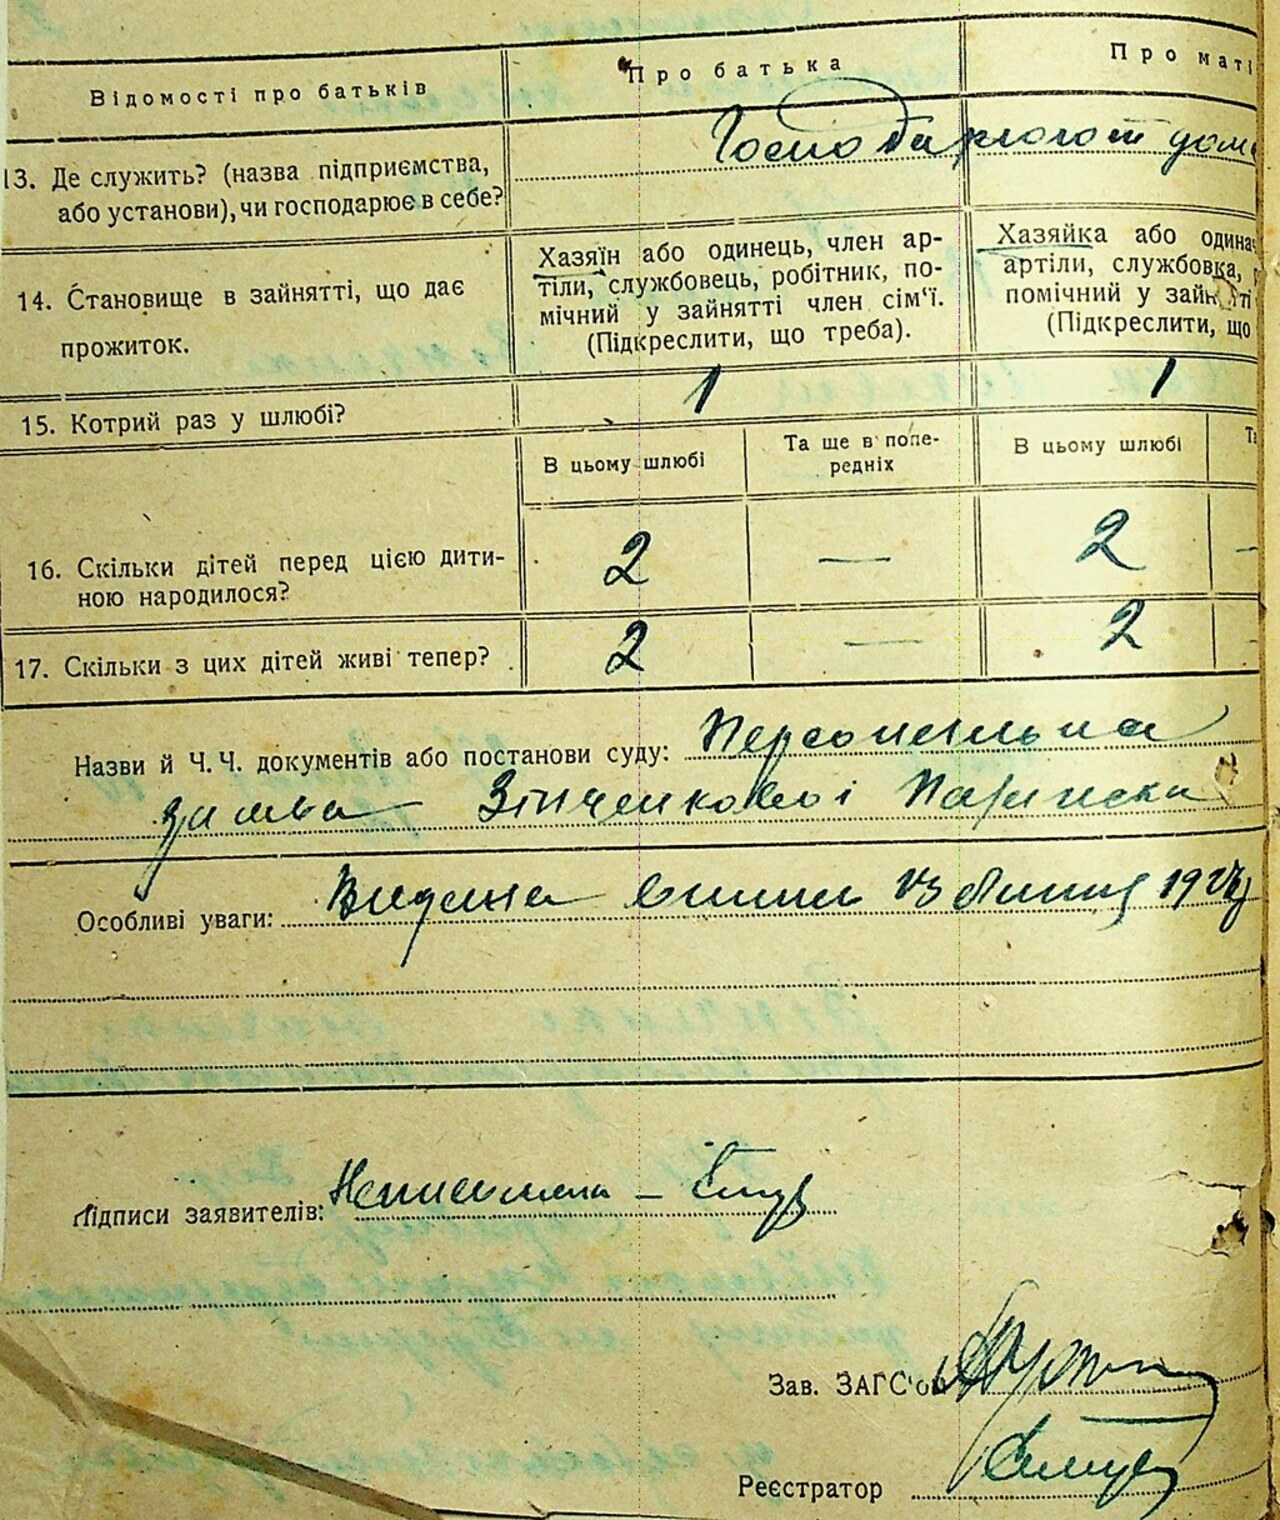 Відомості про батьків
Про батька
Про маті
13. Де служить? (назва підприємства,
або установи), чи господарює в себе?
Господарюют дом
14. Становище в зайнятті, що дає
прожиток.
Хазяїн або одинець, член ар-
тіли, службовець, робітник, по-
мічний у зайнятті член сім'ї.
(Підкреслити, що треба).
Хазяйка або одинач
артіли, службовка, р
помічний у зайнятті
(Підкреслити, що
15. Котрий раз у шлюбі?
1
1
В цьому шлюбі
Та ще в попе-
редніх
В цьому шлюбі
Та
16. Скільки дітей перед цією дити-
ною народилося?
2 — 2 —
17. Скільки з цих дітей живі тепер?
2 — 2 —
Назви й Ч. Ч. документів або постанови суду: Персональна
заява Зінченкової
Особливі уваги: Видана 192
Підписи заявителів: Неписьмена —
Зав. ЗАГС'ом
Реєстратор